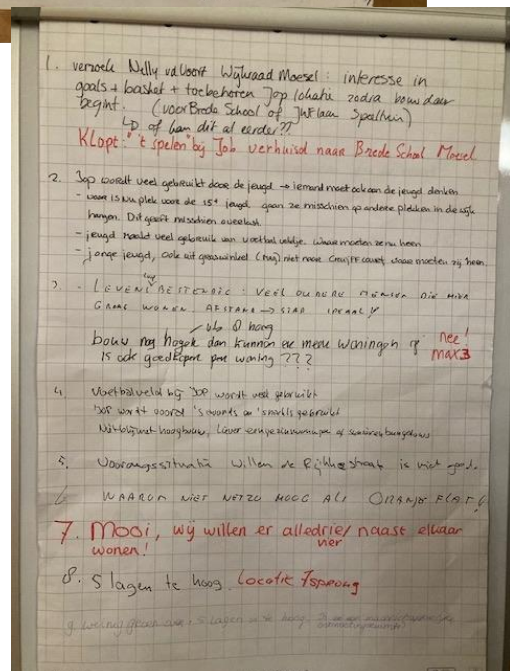 1. verzoek Nelly vd Voort Wijkraad Moesel: interesse in
goals + basket + toebehoren Jop lokatie zodra bouw daar
begint. (voor Brede School of
↳ of kan dit al eerder??
Klopt: "t spelen" bij Job verhuisd naar Brede School Moesel
2. Jop wordt veel gebruikt door de jeugd → iemand moet ook aan de jeugd denken
- waar is nu plek voor de 15+ jeugd. gaan ze misschien op andere plekken in de wijk
hangen. Dit geeft misschien overlast.
- jeugd maakt veel gebruik van voetbal veldje. Waar moeten ze nu heen
- jonge jeugd, ook uit niet naar Cruijff court, waar moeten zij heen.
3. LEVENSBESTENDIG: VEEL OUDERE MENSEN DIE HIER
GRAAG WONEN. AFSTAND → STAD IDEAAL!
bouw nog hoger dan kunnen er meer woningen of
is ook goedkoper per woning ???
nee!
max 3
4. Voetbalveld bij JOP wordt veel gebruikt
JOP wordt vooral 's avonds gebruikt
hoogbouw, liever eengezinswoningen of seniorenbungalows
5. Voorrangssituatie Willem de Rijkestraat is niet goed.
6. WAAROM NIET NET ZO HOOG ALS ORANJE FLAT?
7. Mooi, wij willen er alledrie/ naast elkaar
vier
wonen!
8. 5 lagen te hoog. Locatie 7sprong
9. weinig groen 5 lagen is te hoog.